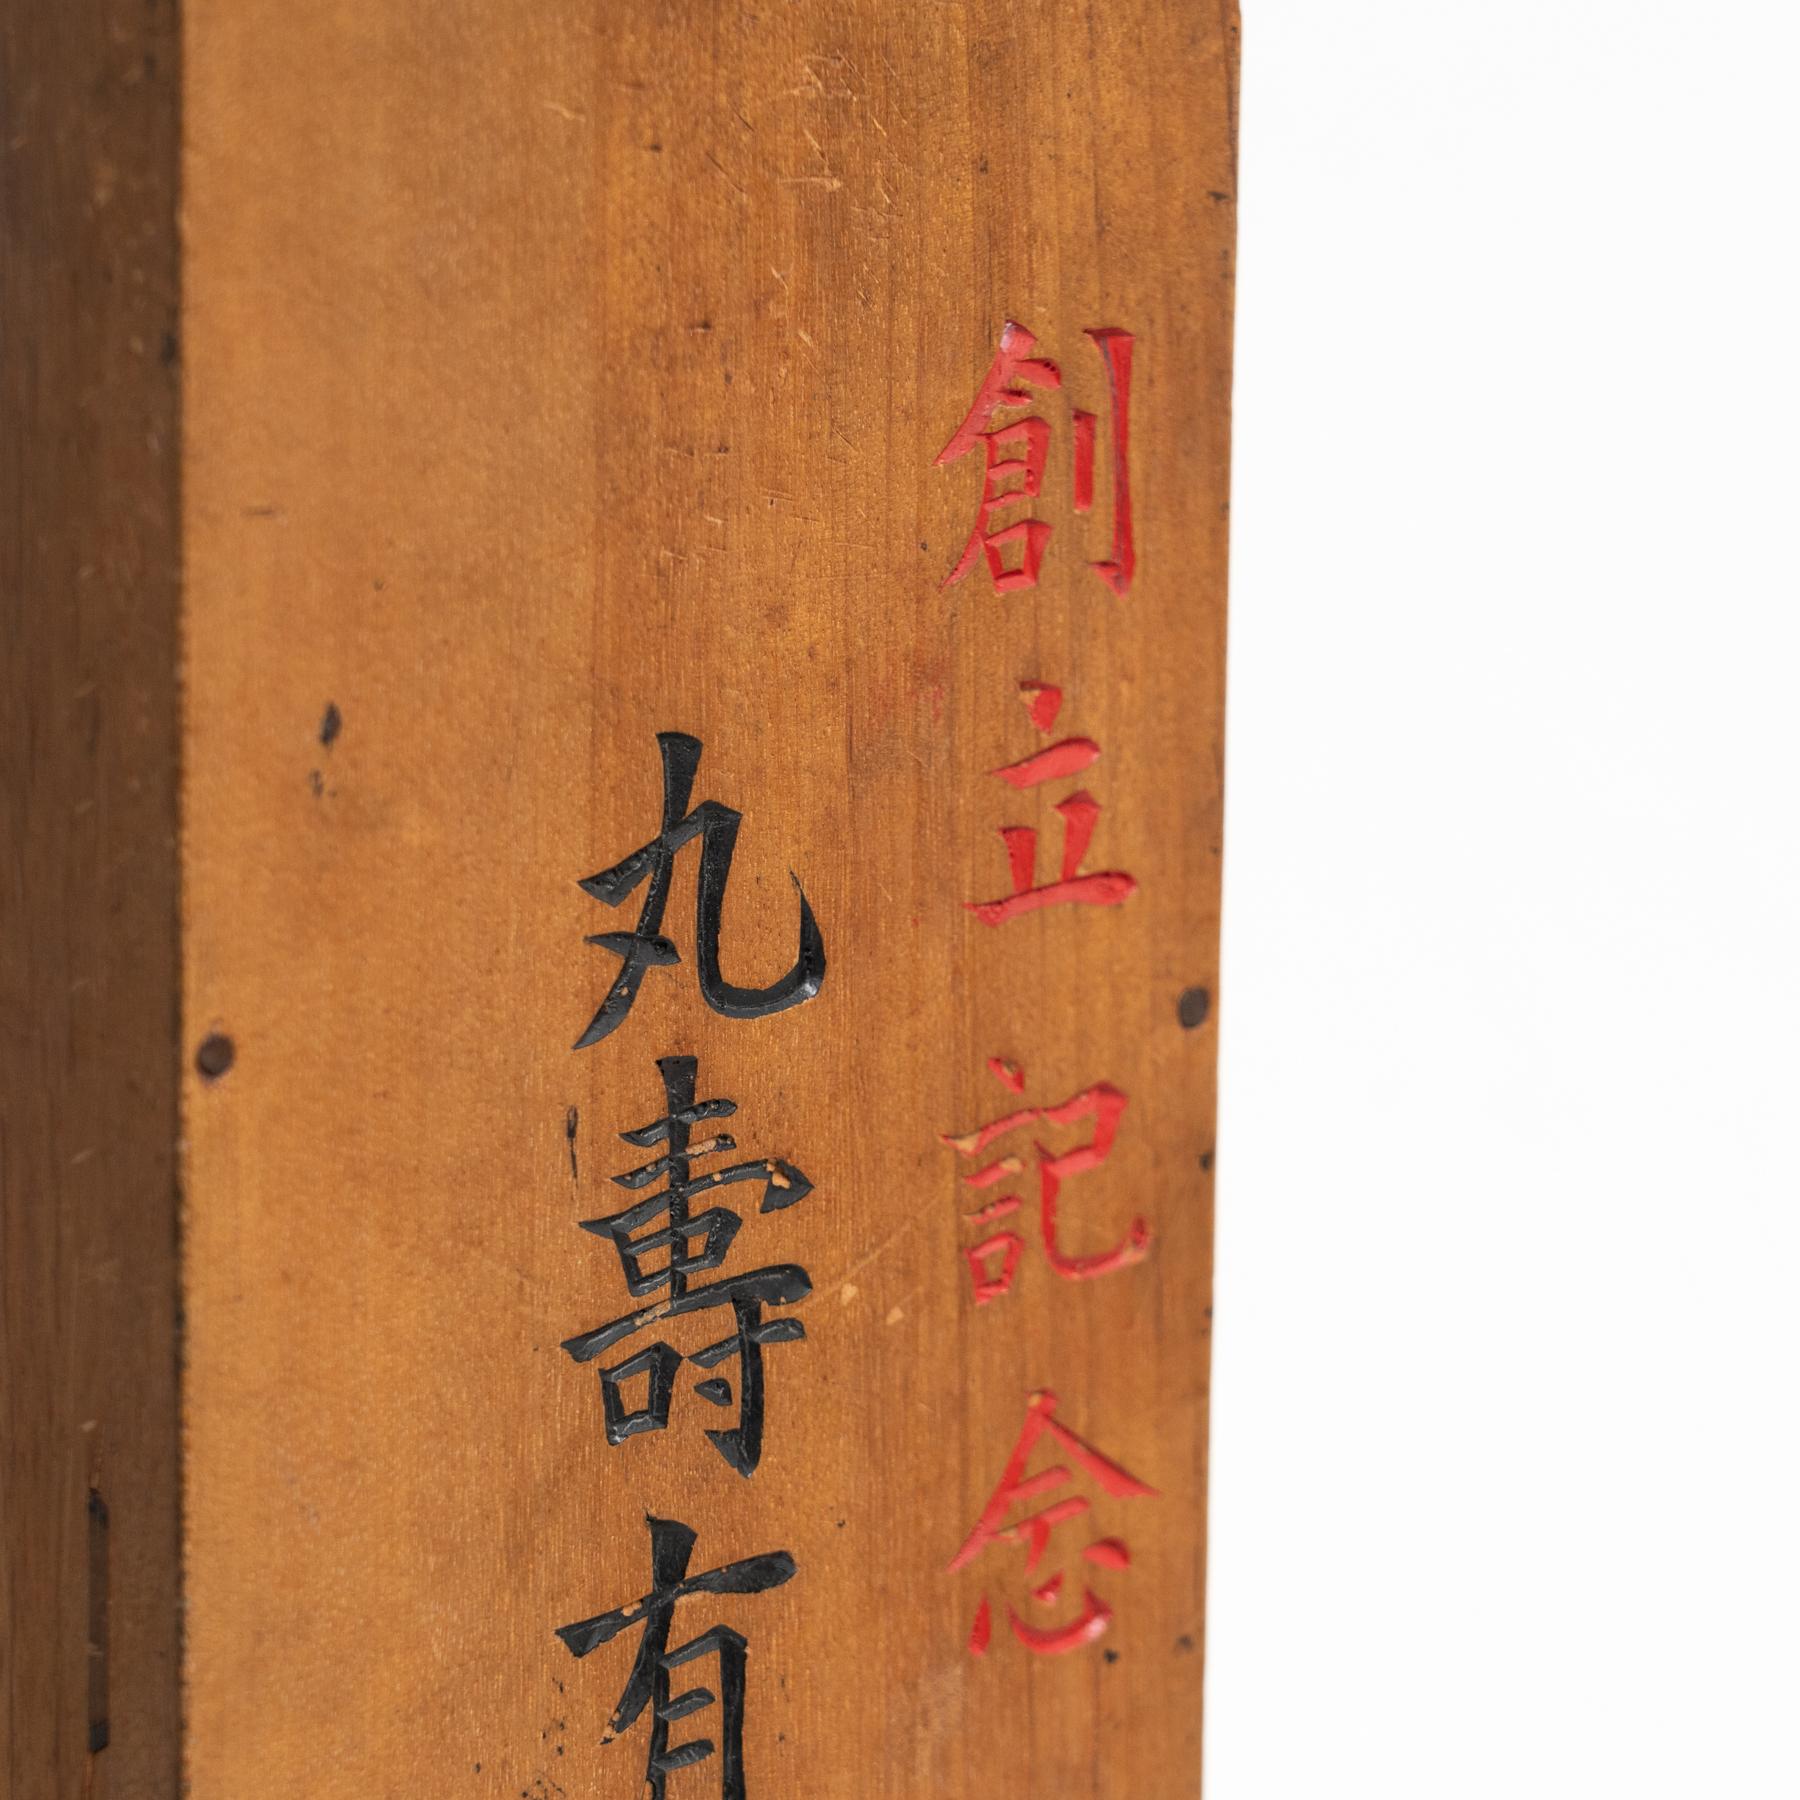 創立記念
丸壽有